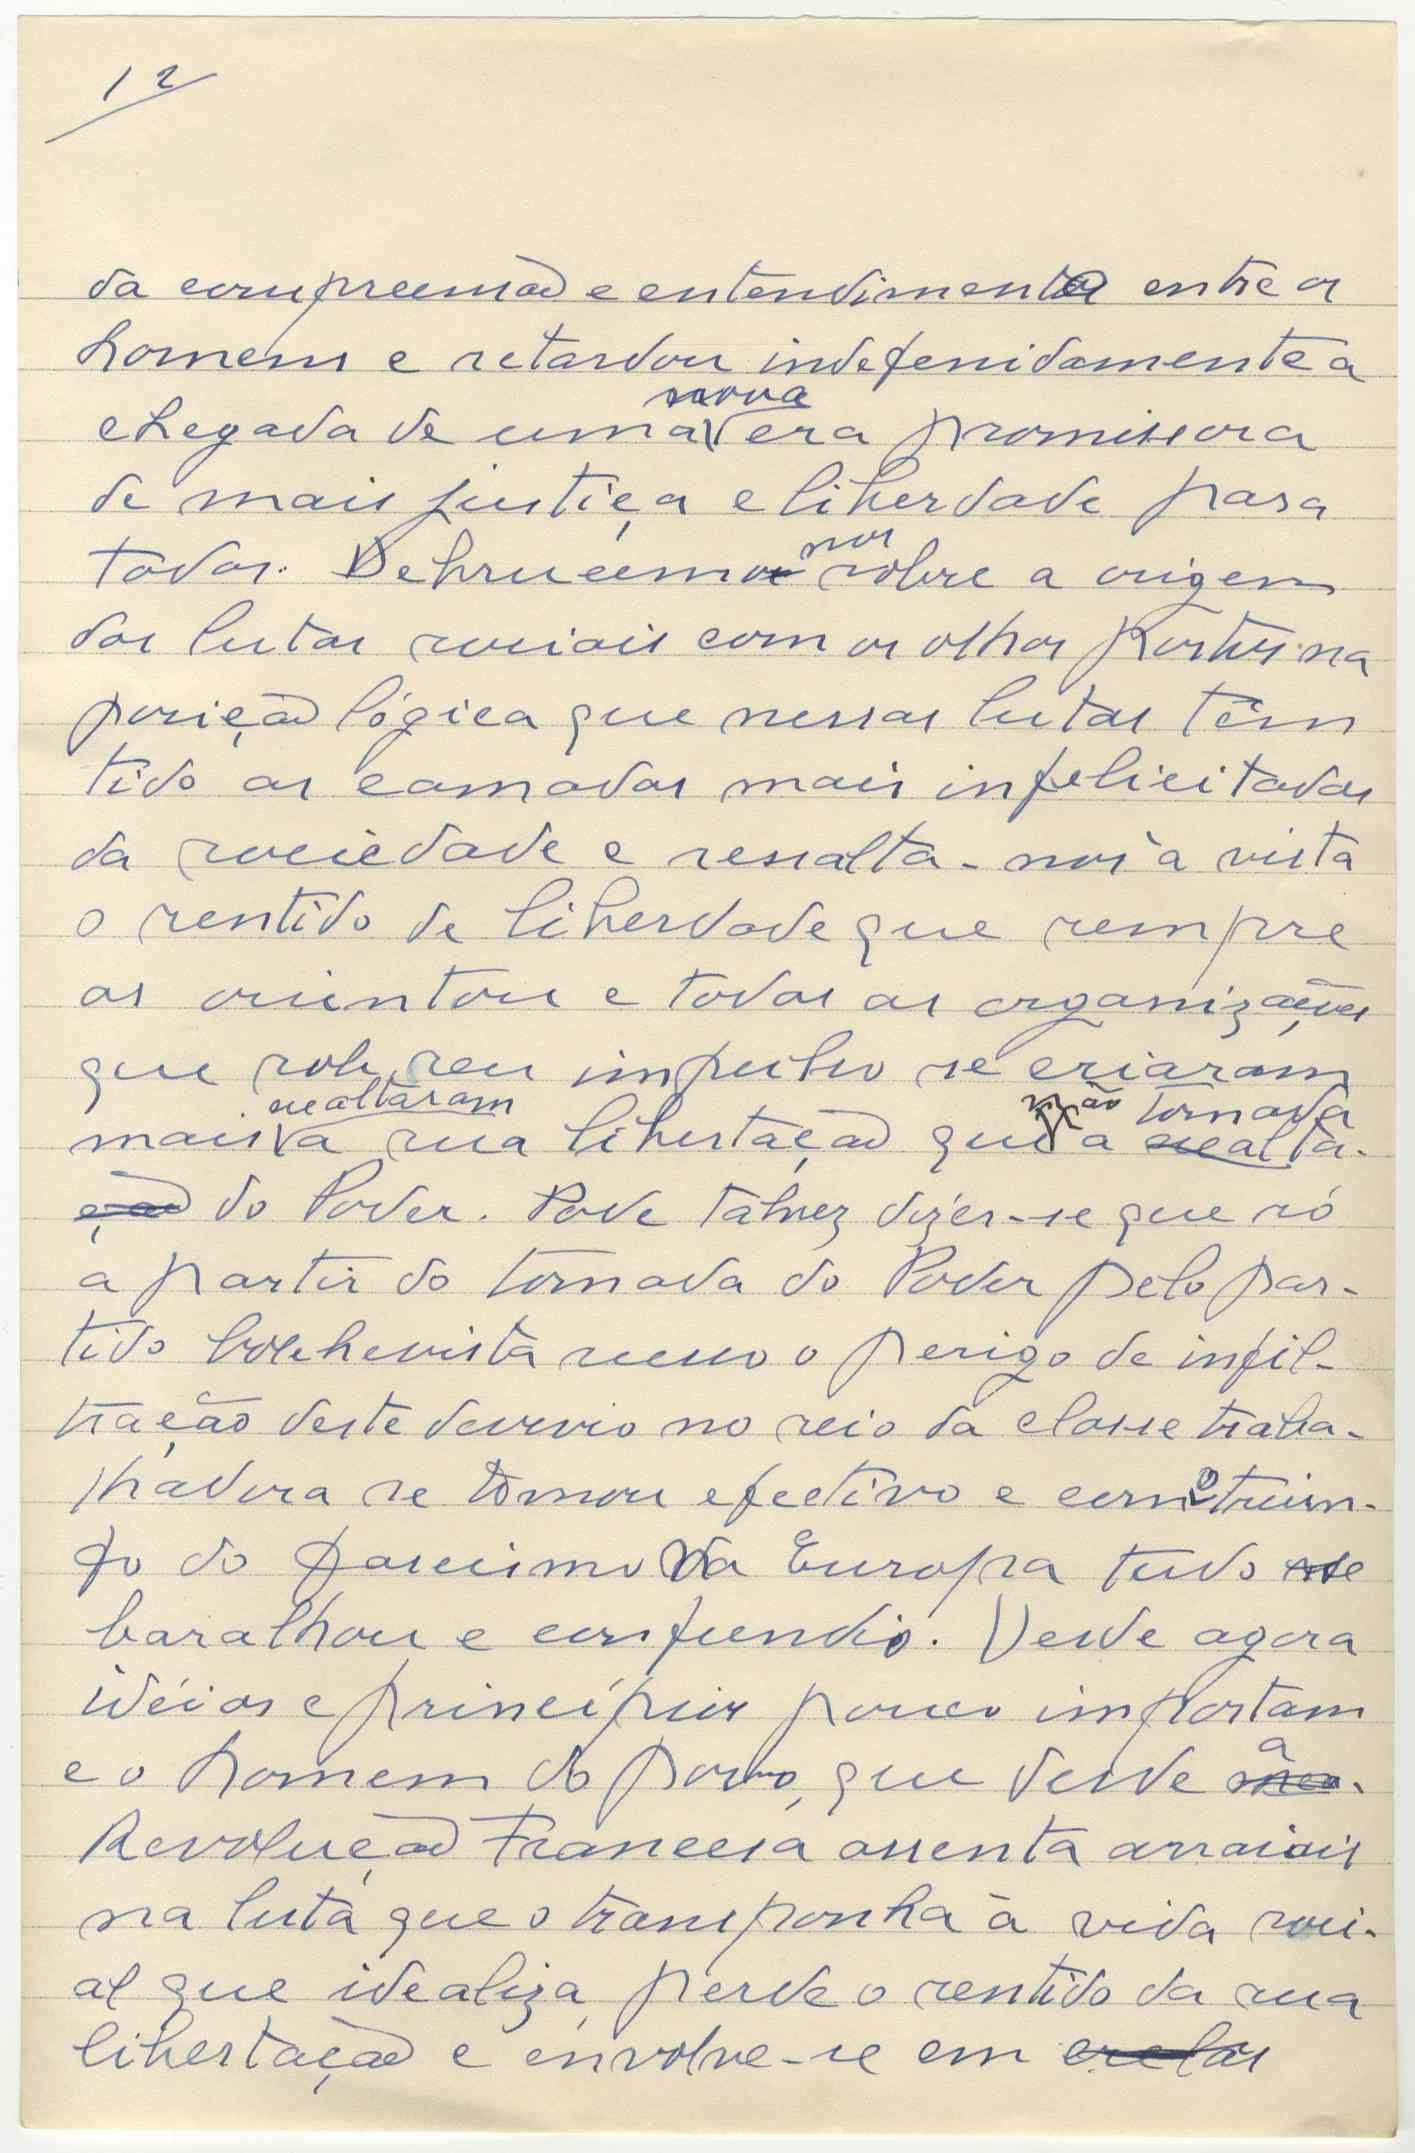 12
da compreensão e entendimento entre os
homens e retardou indefenidamente a
chegada de uma nova era promissora
de mais justiça e liberdade para
todos. Debrucemo nos sobre a origem
das lutas sociais com os olhos postos na
posição lógica que nessas lutas têm
tido as camadas mais infelicitadas
da sociedade e ressalta-nos à vista
o sentido de liberdade que sempre
as orientou e todas as organizações
que sob seu impulso se criaram
mais exaltaram a sua libertação que não a tomada exalta-
ção do Poder. Pode talvez dizer-se que só
a partir do tomada do Poder pelo par-
tido bolchevista russo o perigo de infil-
tração deste desvio no seio da classe traba-
lhadora se tornou efectivo e com o triun-
fo do fascismo na Europa tudo se
baralhou e confundio. Desde agora
idéias e princípios pouco importam
e o homem do povo, que desde a
Revolução Francesa assenta arraiais
na luta que o transponha à vida soci-
al que idealiza, perde o sentido da sua
libertação e envolve-se em